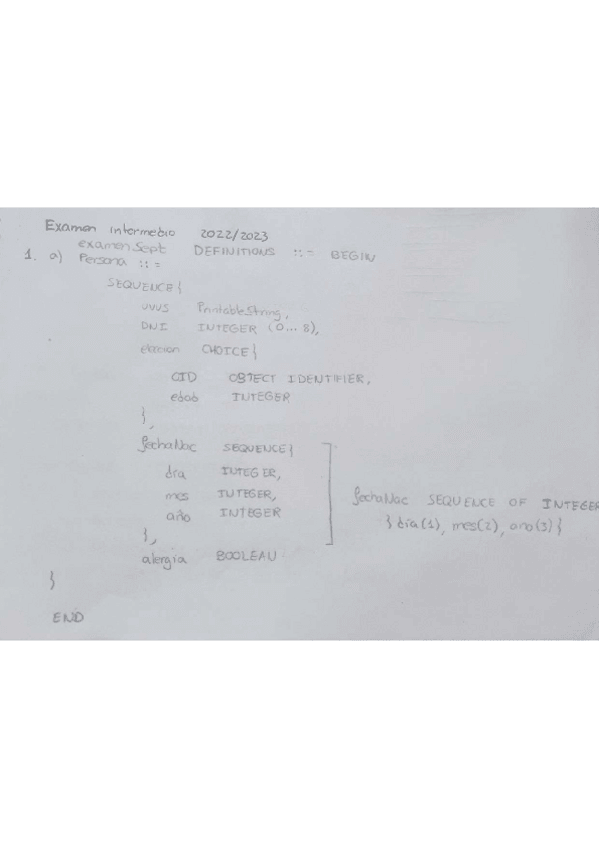 Examen intermedio 2022/2023
1. a) examenSept DEFINITIONS ::= BEGIN
Persona ::=
SEQUENCE {
UUUS PrintableString,
DNI INTEGER (0...8),
eleccion CHOICE {
OID OBJECT IDENTIFIER,
ebob INTEGER
},
fechaNac SEQUENCE {
dia INTEGER,
mes INTEGER,
año INTEGER
},
fechaNac SEQUENCE OF INTEGER
{ dia(1), mes(2), ano(3) }
alergia BOOLEAN
}
END